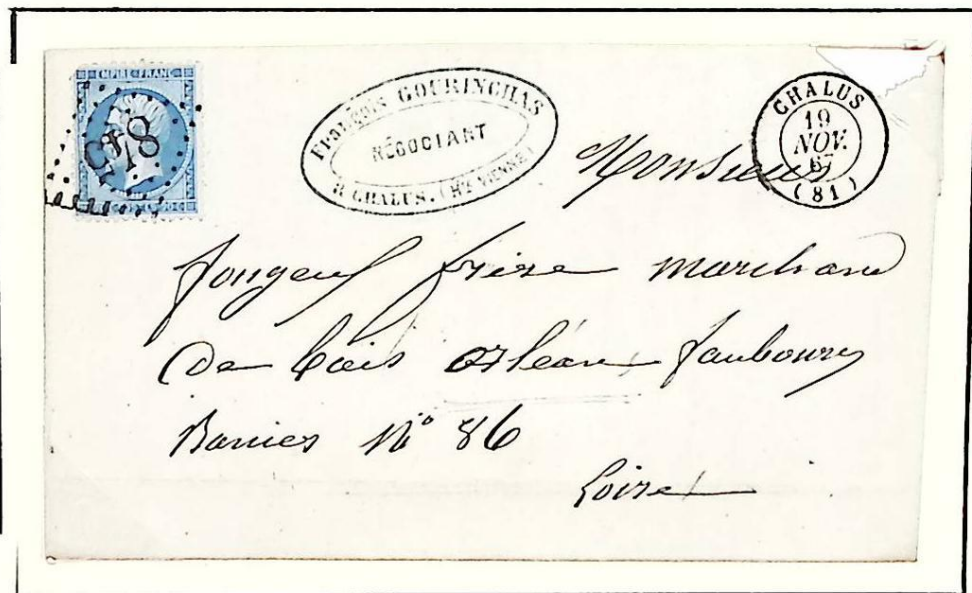 EMPIRE FRANC
845
FRANÇOIS GOURINCHAS
NÉGOCIANT
à CHALUS. (Hte VIENNE)
CHALUS
19
NOV.
67
(81)
Monsieur
frère marchand
de bois orléans faubourg
Banier N° 86
Loiret